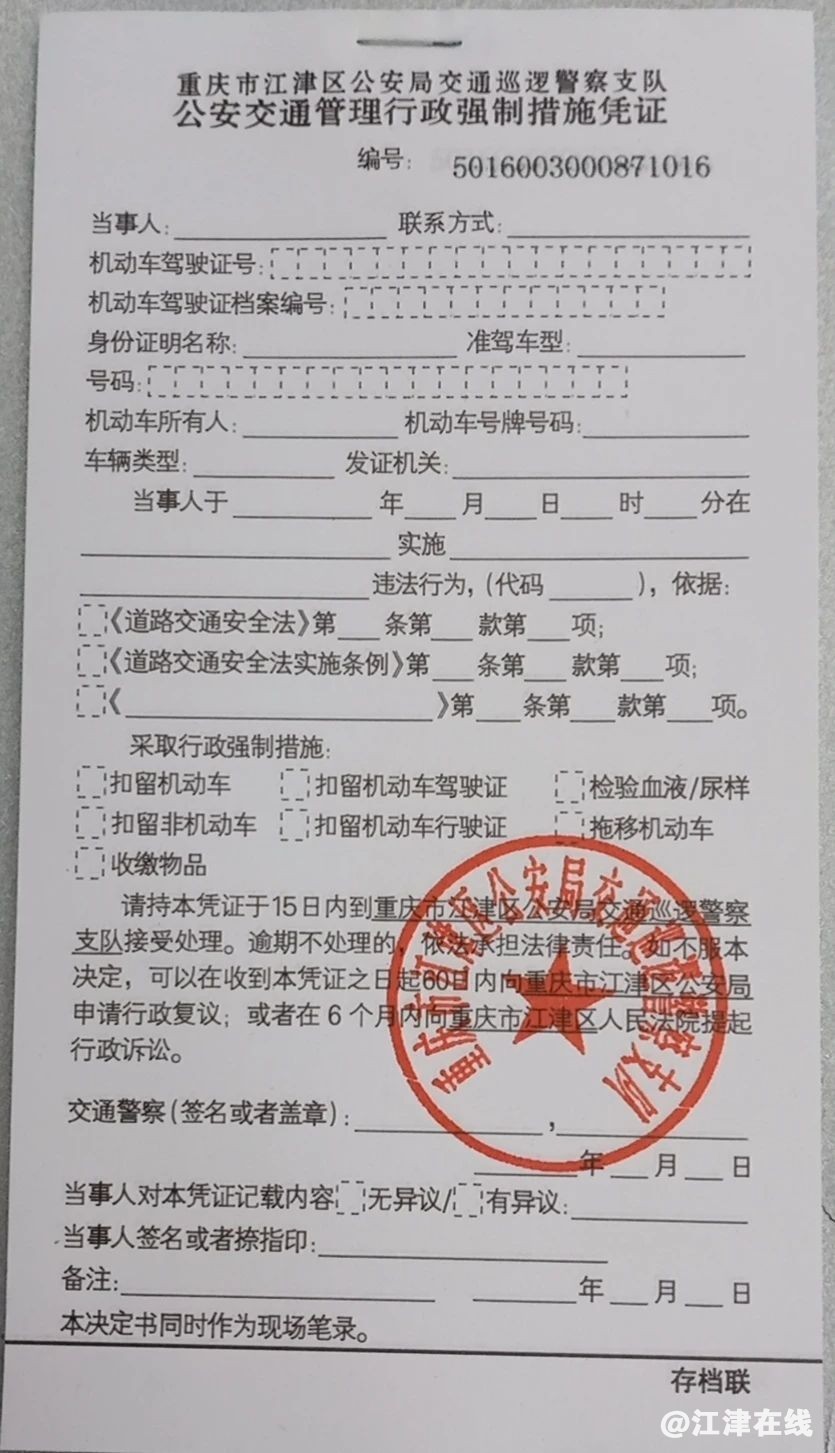 重庆市江津区公安局交通巡逻警察支队
公安交通管理行政强制措施凭证
编号: 5016003000871016
当事人: 联系方式:
机动车驾驶证号:
机动车驾驶证档案编号:
身份证明名称: 准驾车型:
号码:
机动车所有人: 机动车号牌号码:
车辆类型: 发证机关:
当事人于 年 月 日 时 分在
实施
违法行为,(代码 ),依据:
《道路交通安全法》第 条第 款第 项;
《道路交通安全法实施条例》第 条第 款第 项;
《 》第 条第 款第 项。
采取行政强制措施:
扣留机动车 扣留机动车驾驶证 检验血液/尿样
扣留非机动车 扣留机动车行驶证 拖移机动车
收缴物品
请持本凭证于15日内到重庆市江津区公安局交通巡逻警察
支队接受处理。逾期不处理的,依法承担法律责任。如不服本
决定,可以在收到本凭证之日起60日内向重庆市江津区公安局
申请行政复议;或者在6个月内向重庆市江津区人民法院提起
行政诉讼。
重庆市江津区公安局交通巡逻警察支队
交通警察(签名或者盖章): ,
年 月 日
当事人对本凭证记载内容 无异议/ 有异议:
当事人签名或者捺指印:
备注: 年 月 日
本决定书同时作为现场笔录。
存档联
@江津在线